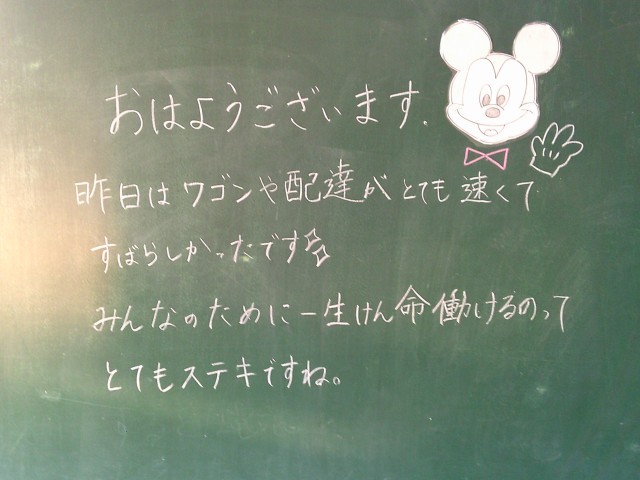 おはようございます.
昨日はワゴンや配達がとても速くて
すばらしかったです
みんなのために一生けん命働けるのって
とてもステキですね。